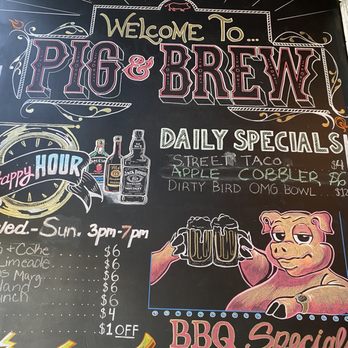 WELCOME TO...
PIG & BREW
Happy HOUR
Wed-Sun. 3pm-7pm
& Coke $6
Limeade $6
Marg $6
land $6
unch $6
$4
$1 OFF
DAILY SPECIALS
STREET TACO $4
APPLE COBBLER $6
DIRTY BIRD OMG BOWL
BBQ Special